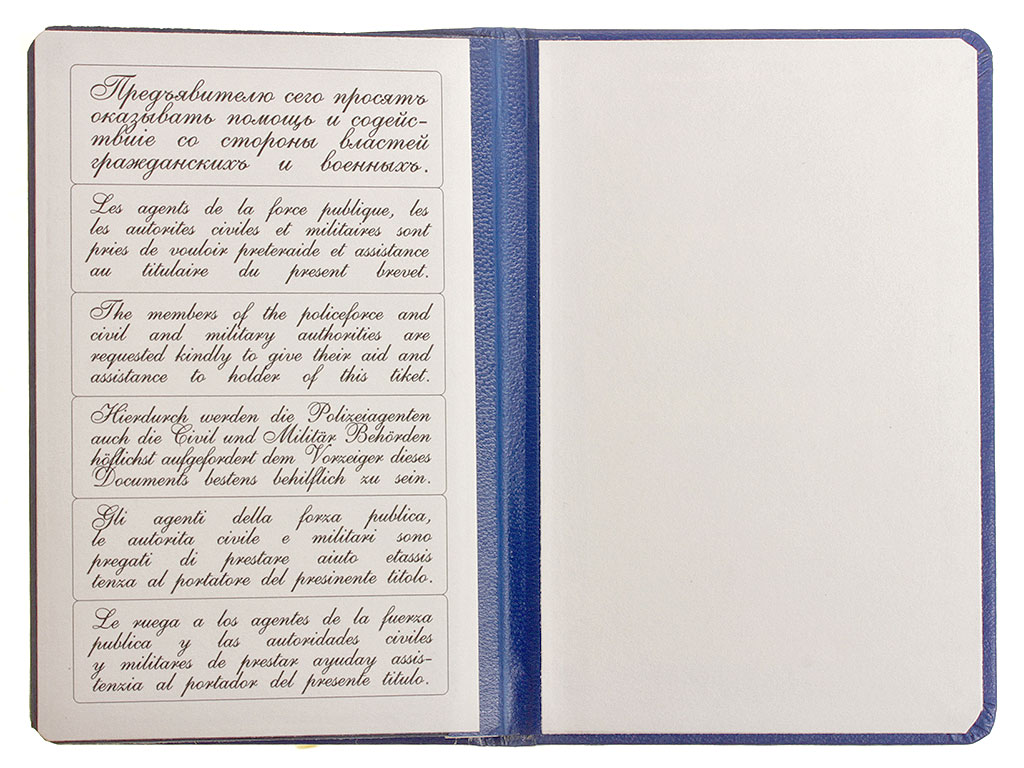 Предъявителю сего просятъ
оказывать помощь и содейс-
твиіе со стороны властей
гражданскихъ и военныхъ.
Les agents de la force publique, les
les autorites civiles et militaires sont
pries de vouloir preteraide et assistance
au titulaire du present brevet.
The members of the policeforce and
civil and military authorities are
requested kindly to give their aid and
assistance to holder of this tiket.
Hierdurch werden die Polizeiagenten
auch die Civil und Militär Behörden
höflichst aufgefordert dem Vorzeiger dieses
Documents bestens behilflich zu sein.
Gli agenti della forza publica,
le autorita civile e militari sono
pregati di prestare aiuto etassis
tenza al portatore del presinente titolo.
Le ruega a los agentes de la fuerza
publica y las autoridades civiles
y militares de prestar ayuday assis-
tenzia al portador del presente titulo.